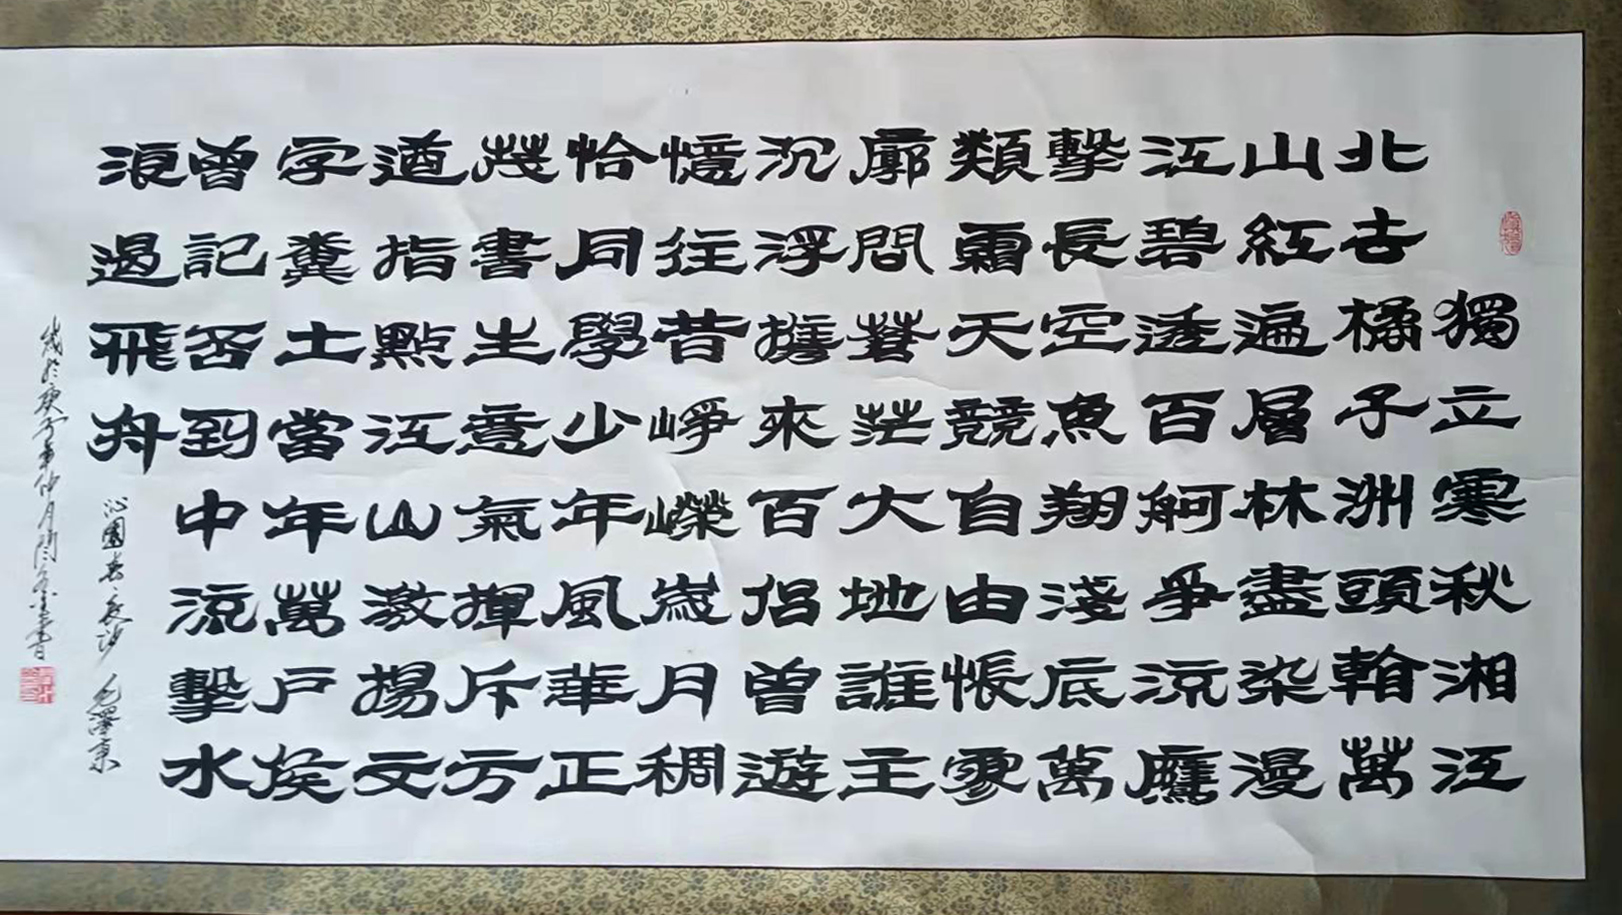 獨立寒秋湘江
北去橘子洲頭看萬
山紅遍層林盡染漫
江碧透百舸爭流鷹
擊長空魚翔淺底萬
類霜天競自由悵寥
廓問蒼茫大地誰主
沉浮攜來百侶曾遊
憶往昔崢嶸歲月稠
恰同學少年風華正
茂書生意氣揮斥方
遒指點江山激揚文
字糞土當年萬戶侯
曾記否到中流擊水
浪遏飛舟
沁園春·長沙 毛澤東
歲於庚子年仲月